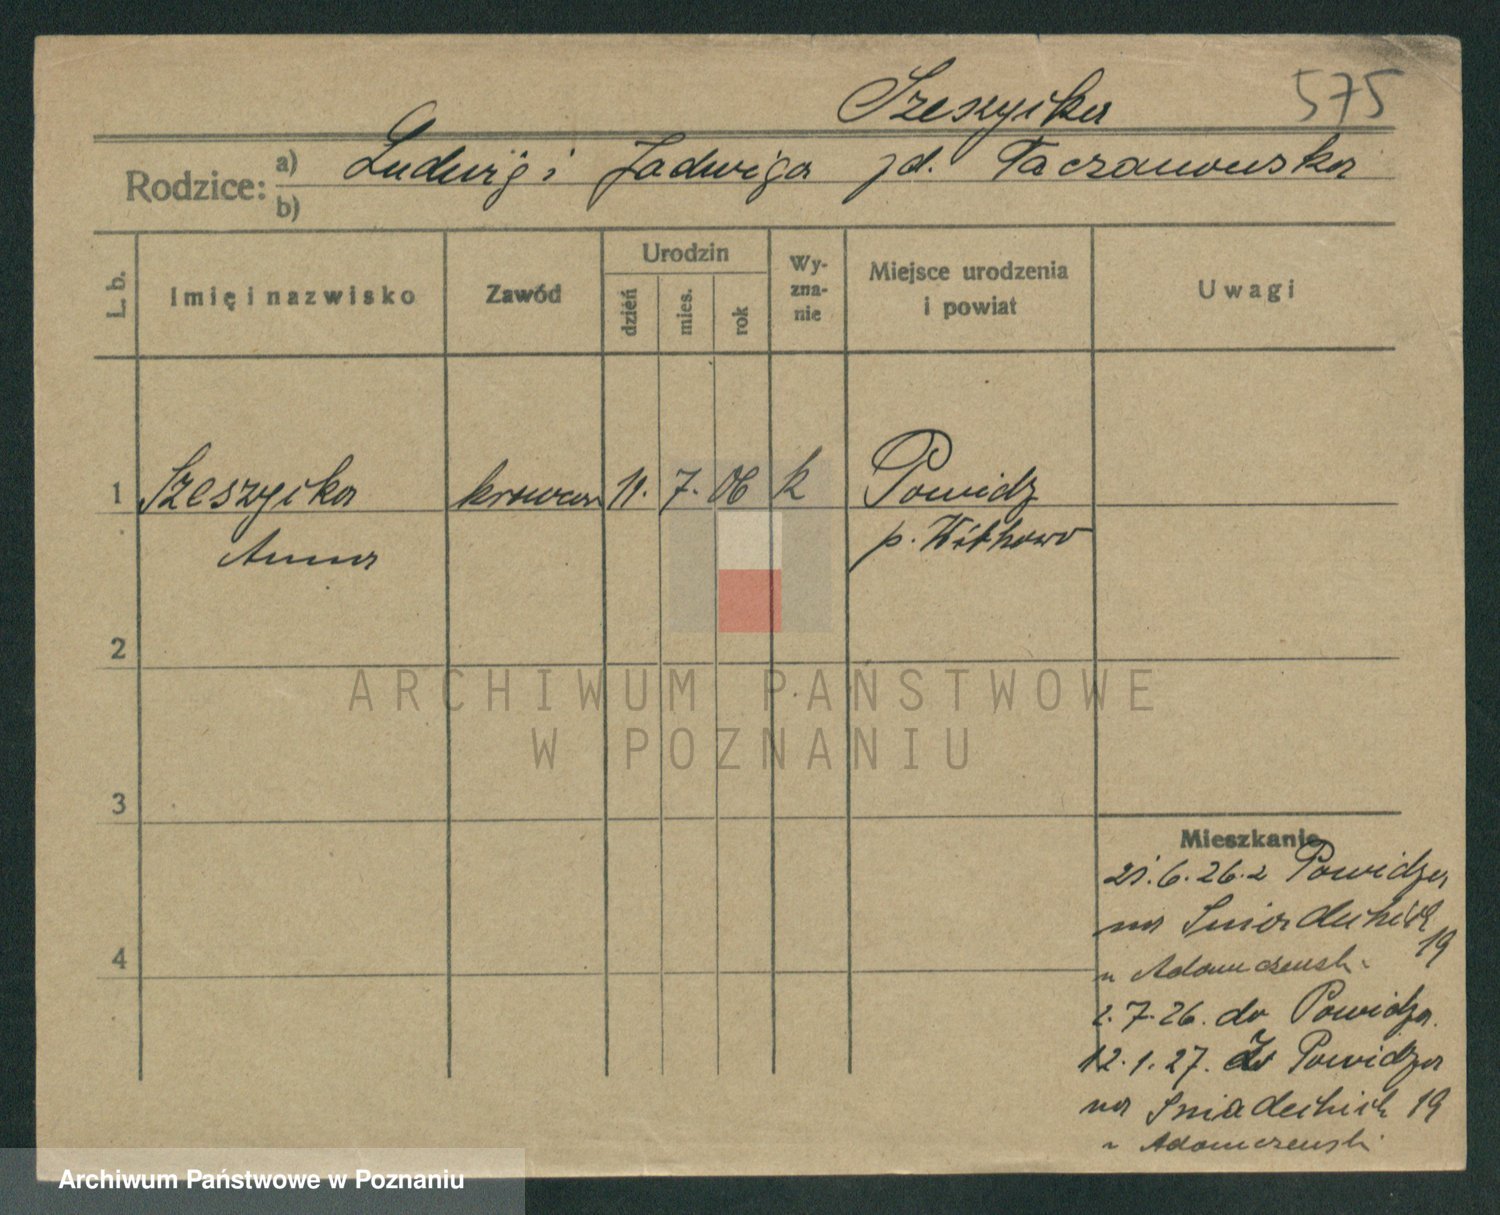 Szeszycka 575
Rodzice: a) Ludwig i Jadwiga zd. Taczanowska
b)
L. b. Imię i nazwisko Zawód Urodzin dzień mies. rok Wyznanie Miejsce urodzenia i powiat Uwagi
1 Szeszycka krawcowa 11. 7. 06 k Powidz
Anna p. Witkowo
2
ARCHIWUM PAŃSTWOWE
W POZNANIU
3
Mieszkanie
21.6.26. z Powidza
na Śniadeckich 19
u Adamczewski
2.7.26. do Powidza.
12.1.27. z Powidza
na Śniadeckich 19
u Adamczewski
4
Archiwum Państwowe w Poznaniu